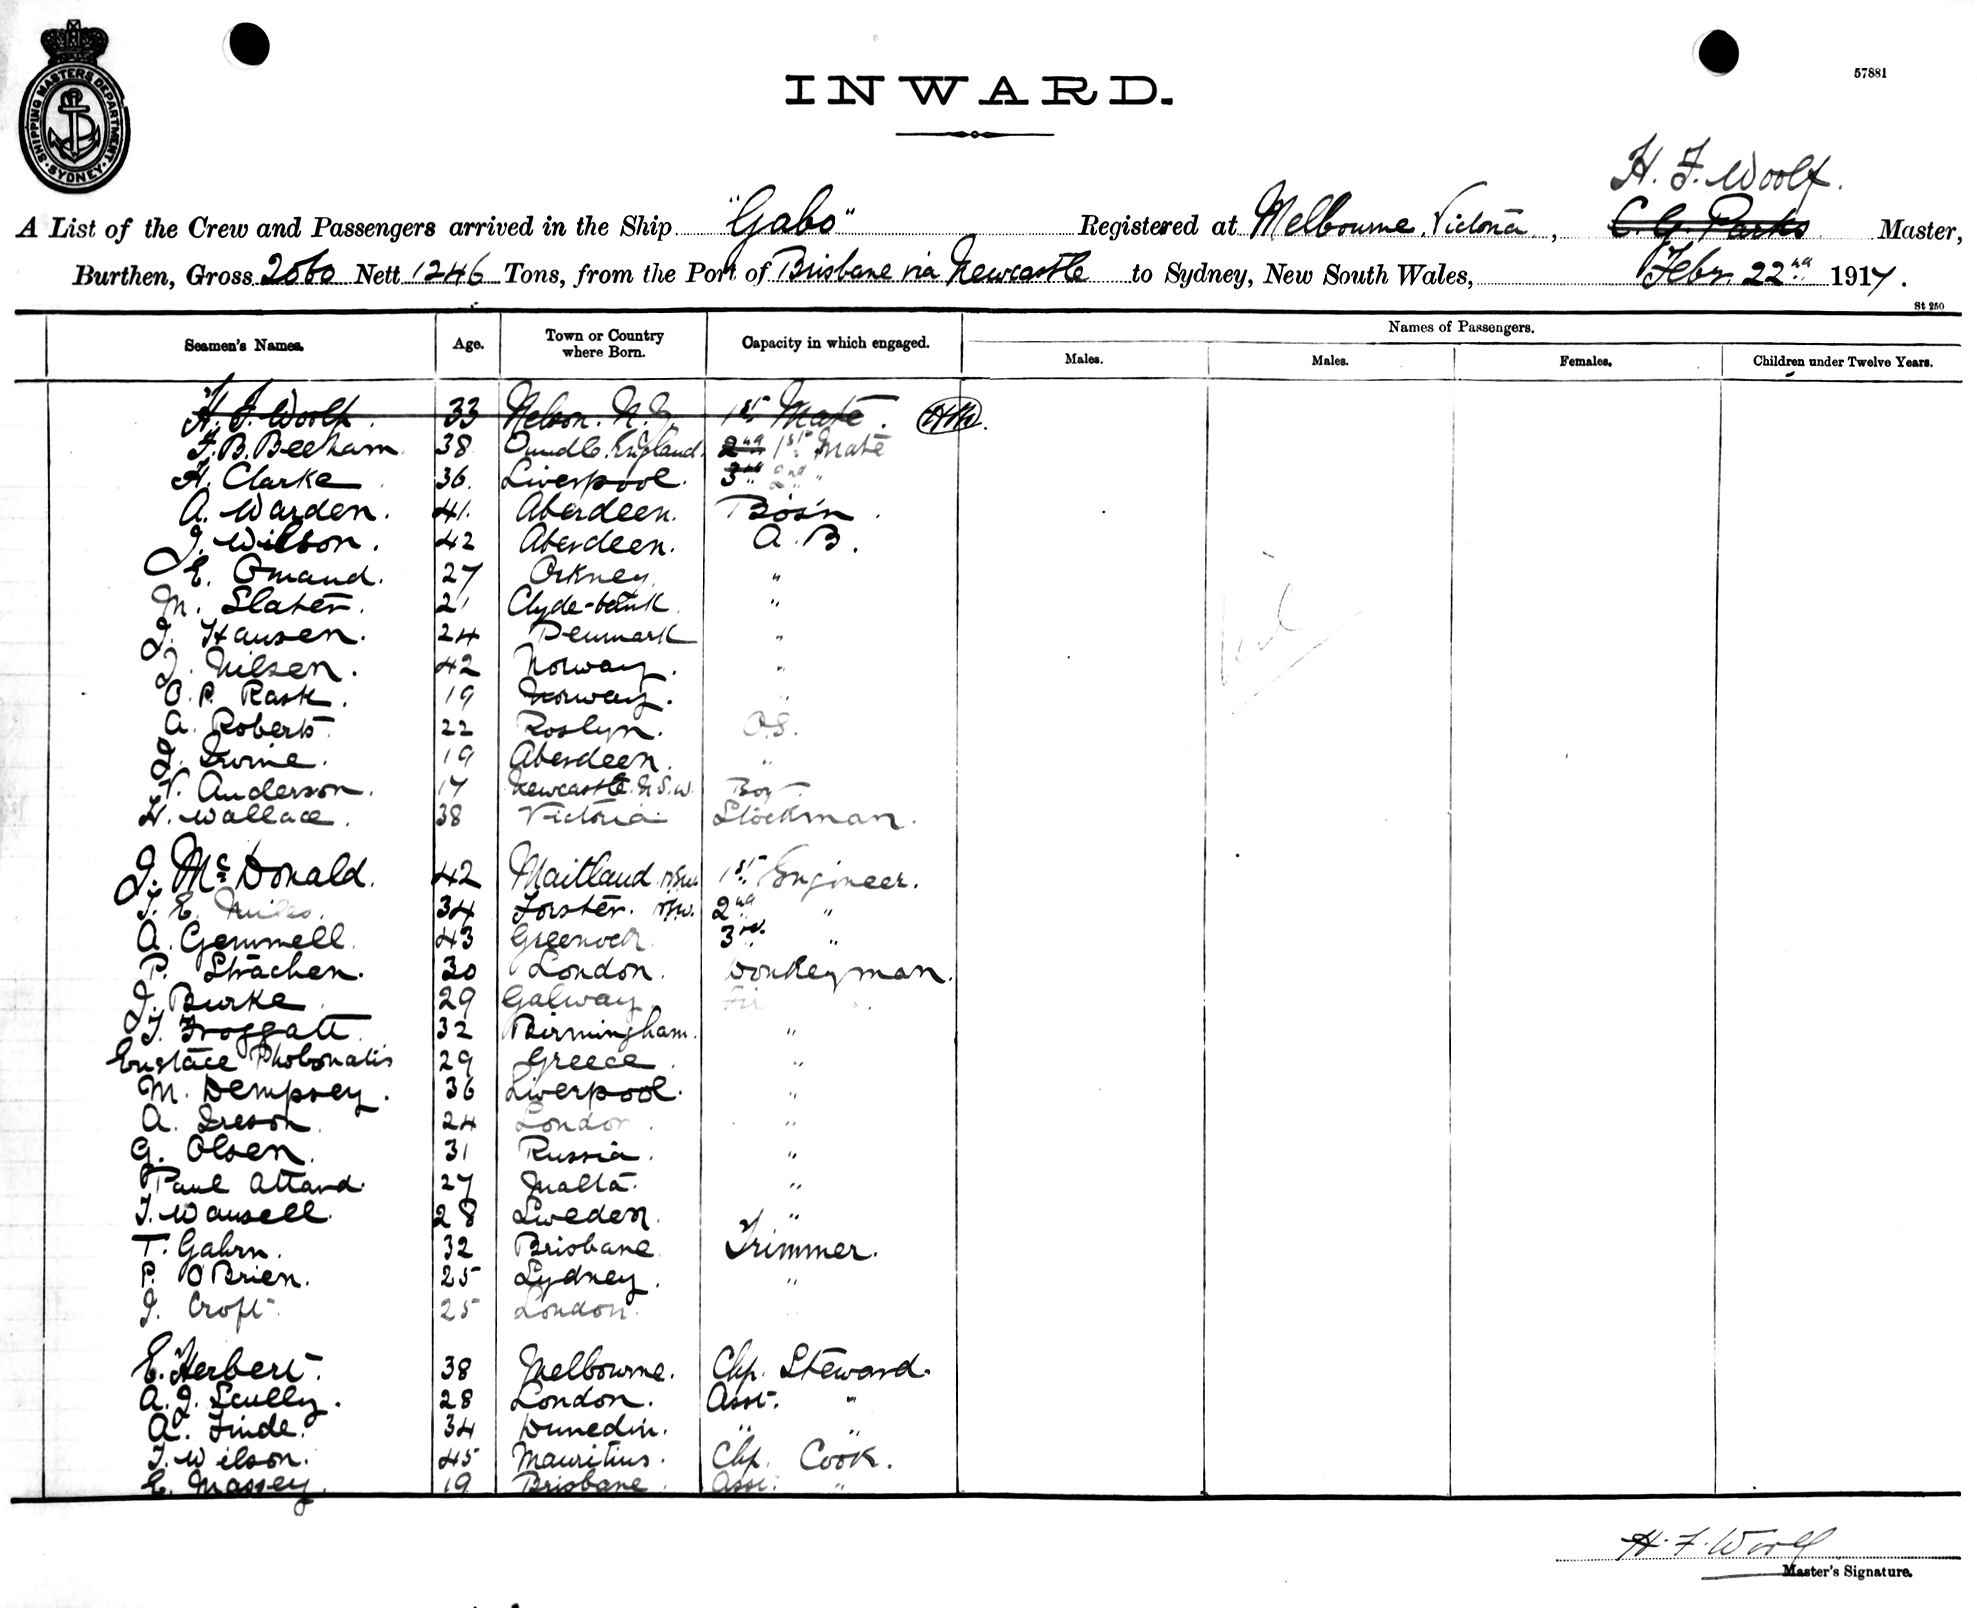 SHIPPING MASTERS DEPARTMENT · SYDNEY ·
INWARD.
57881
H. F. Woolf.
A List of the Crew and Passengers arrived in the Ship "Gabo" Registered at Melbourne, Victoria, C. G. Parks Master,
Burthen, Gross 2060 Nett 1246 Tons, from the Port of Brisbane via Newcastle to Sydney, New South Wales, Febr. 22nd 1917.
St 250
Seamen's Names. Age. Town or Country where Born. Capacity in which engaged. Names of Passengers.
Males. Males. Females. Children under Twelve Years.
H. F. Woolf. 33 Nelson. N. Z. 1st Mate.
F. B. Beeham 38 Oundle. England. 2nd 1st Mate
H. Clarke 36. Liverpool. 3rd 2nd "
A. Warden. 41. Aberdeen. Bos'n.
J. Wilson. 42 Aberdeen. A. B.
E. Omand. 27 Orkney. "
M. Slater. 21 Clyde-bank. "
J. Hansen. 24 Denmark "
J. Nilsen. 42 Norway. "
O. P. Rask. 19 Norway. "
A. Roberts. 22 Roslyn. O.S.
J. Irvine. 19 Aberdeen. "
V. Anderson. 17 Newcastle. N.S.W. Boy.
H. Wallace. 38 Victoria. Stockman.
J. McDonald. 42 Maitland N.S.W. 1st Engineer.
34 Forster. N.S.W. 2nd "
A. Gemmell. 43 Greenock. 3rd. "
P. Strachen. 30 London. Donkeyman.
J. Burke 29 Galway
T. Froggatt. 32 Birmingham. "
Eustace 29 Greece. "
M. Dempsey. 36 Liverpool. "
A. Ireson. 24 London. "
G. Olsen. 31 Russia. "
Paul Attard. 27 Malta. "
28 Sweden. "
T. Gahrn. 32 Brisbane. Trimmer.
P. O'Brien. 25 Sydney. "
J. Croft. 25 London.
E. Herbert. 38 Melbourne. Chf. Steward.
A. J. Scully. 28 London. Asst. "
A. Finde. 34 Dunedin. " "
T. Wilson. 45 Mauritius. Chf. Cook.
E. Massey. 19 Brisbane. Asst. "
H. F. Woolf
Master's Signature.